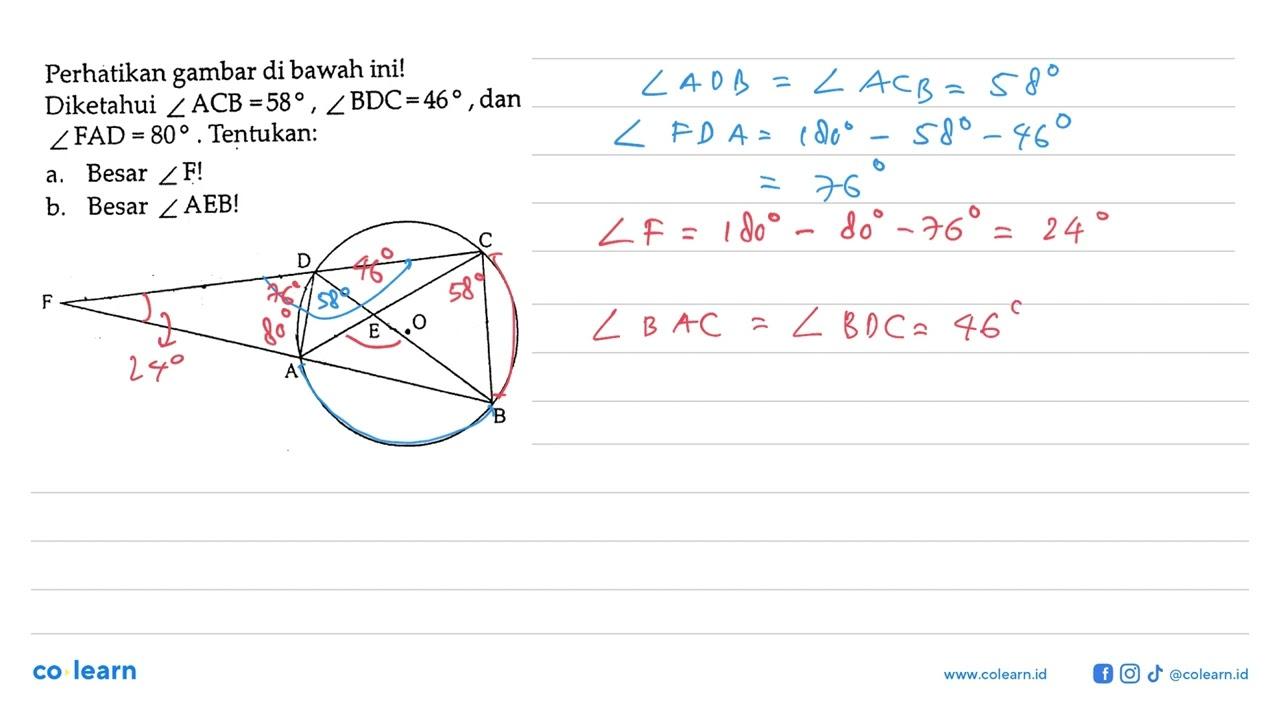 Perhatikan gambar di bawah ini!
Diketahui ∠ACB = 58°, ∠BDC = 46°, dan
∠FAD = 80°. Tentukan:
a. Besar ∠F!
b. Besar ∠AEB!
∠ADB = ∠ACB = 58°
∠FDA = 180° - 58° - 46°
= 76°
∠F = 180° - 80° - 76° = 24°
∠BAC = ∠BDC = 46°
C
D
46°
F
76°
58°
58°
80°
E
O
24°
A
B
co learn
www.colearn.id
@colearn.id